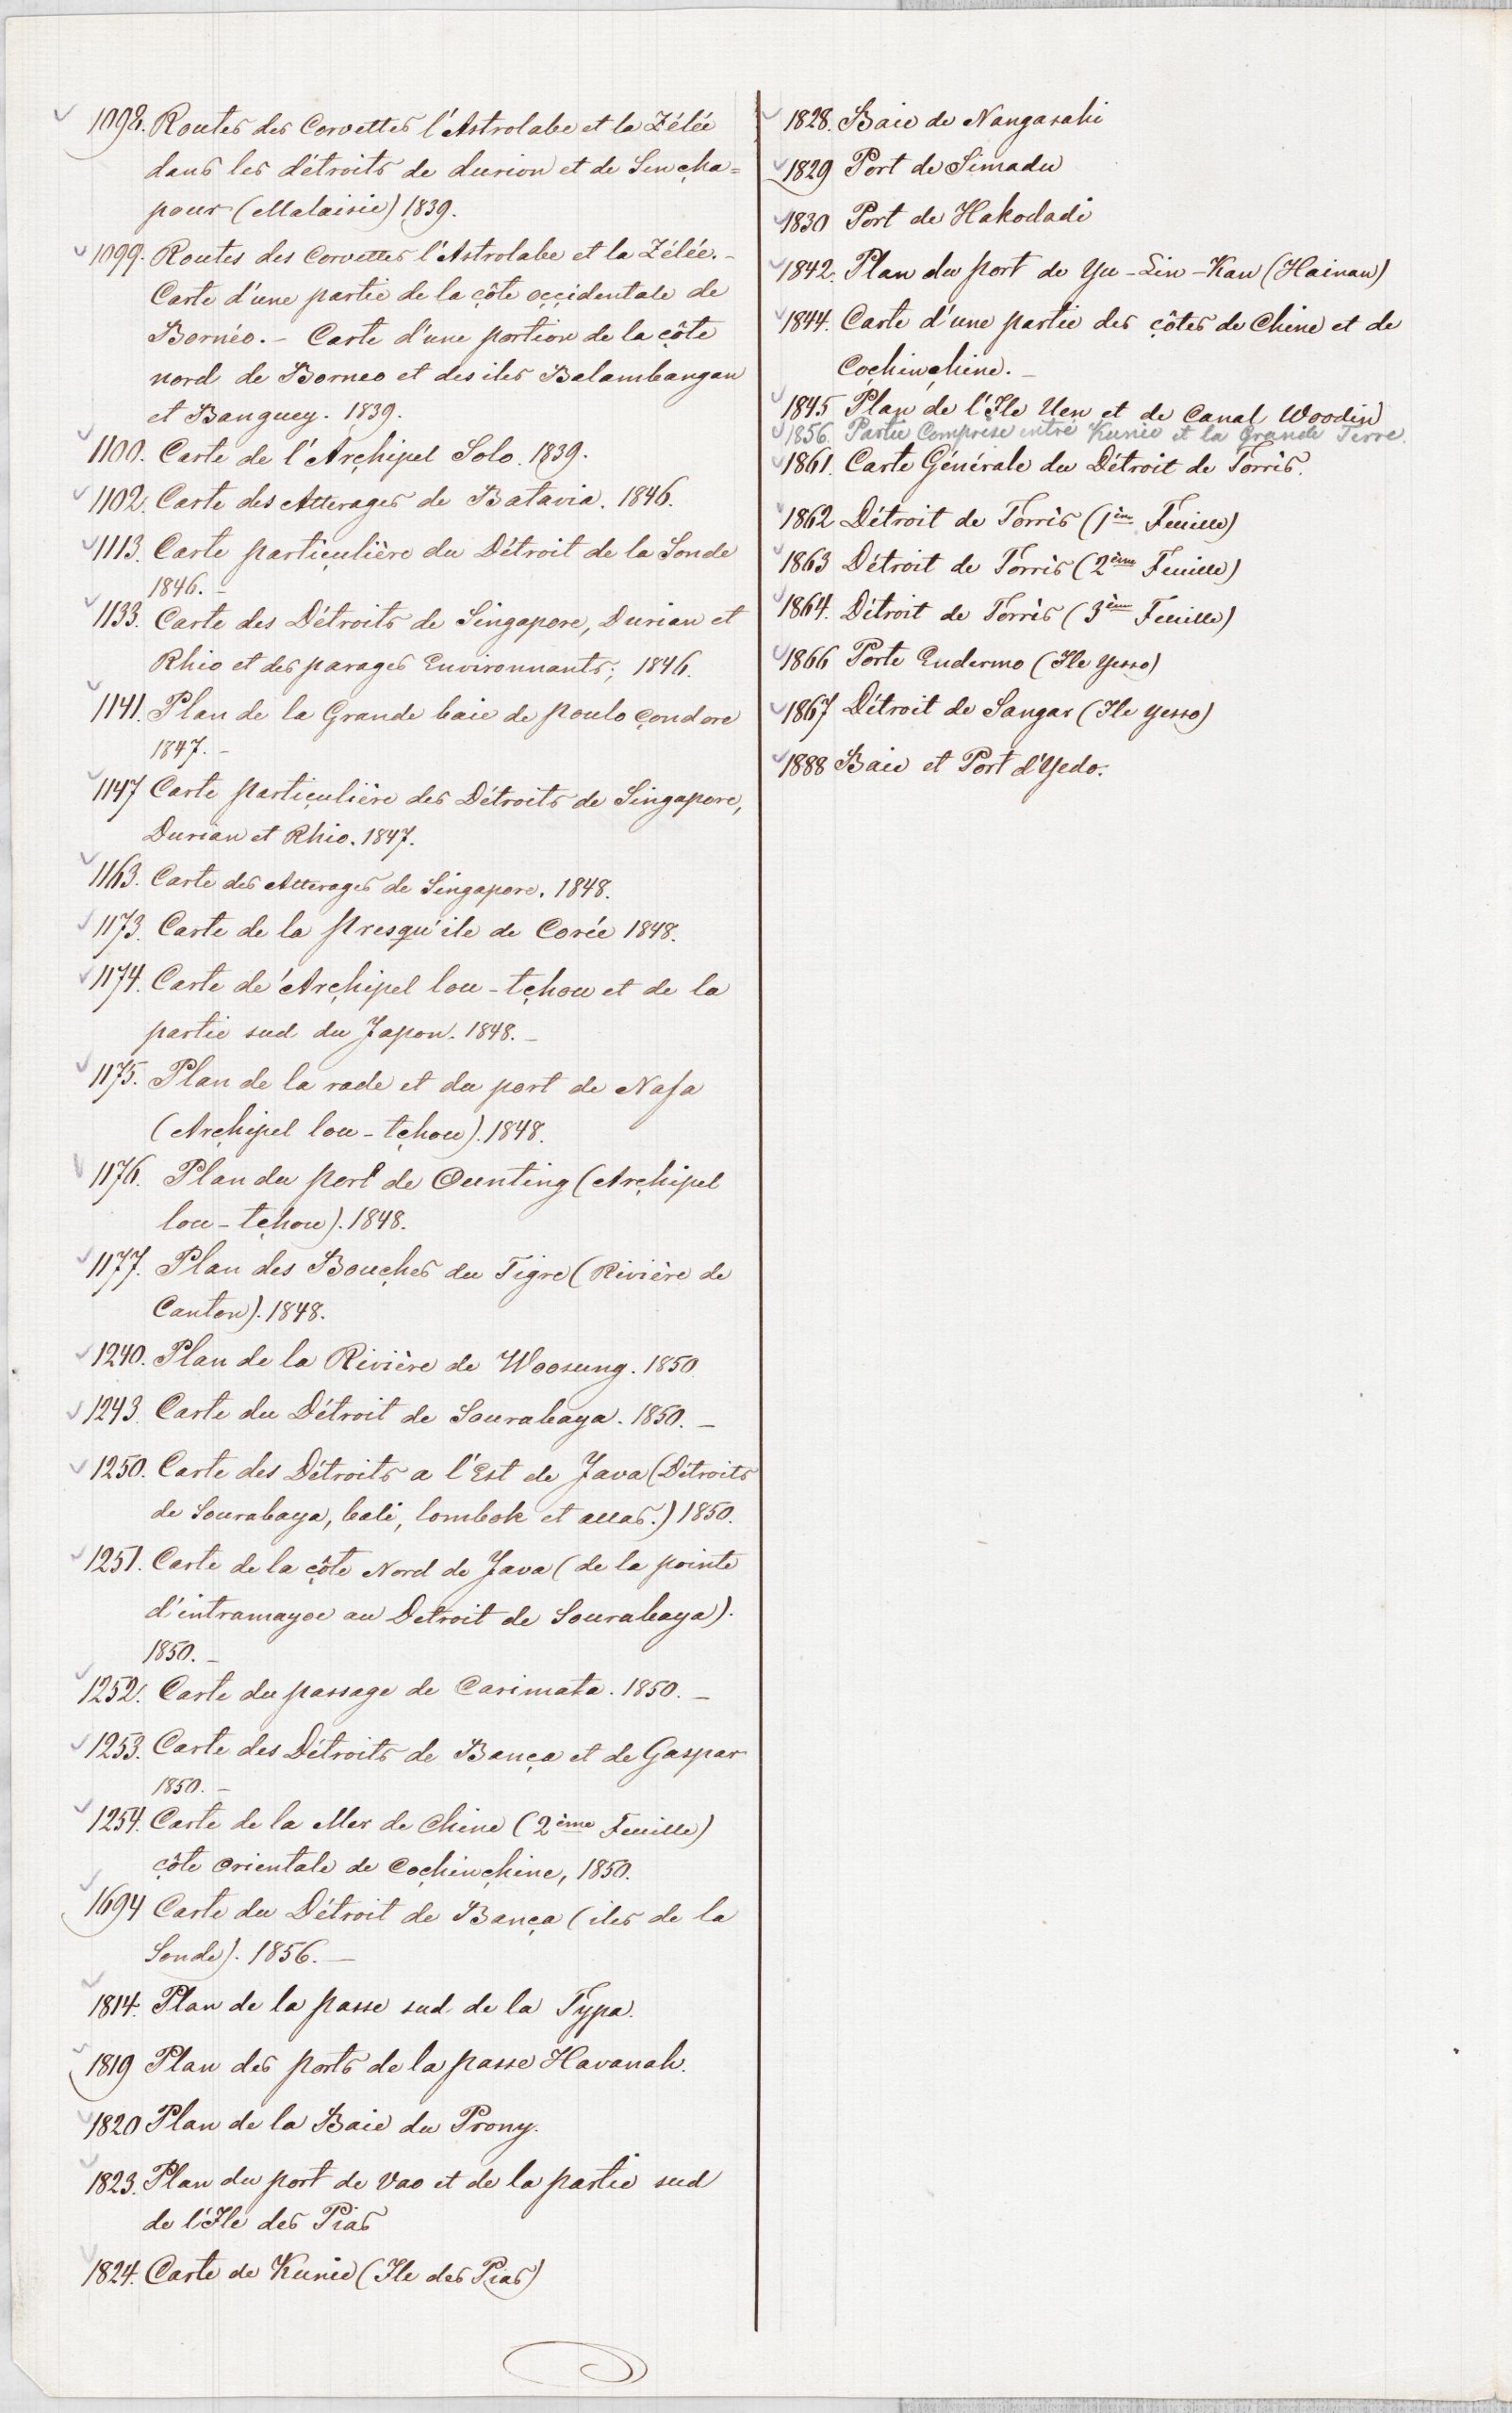 1098. Routes des Corvettes l'Astrolabe et la Zélée
dans les détroits de durion et de Sinçha=
pour (Malaisie) 1839.
1099. Routes des Corvettes l'Astrolabe et la Zélée. –
Carte d'une partie de la çôte oççidentale de
Bornéo. – Carte d'une portion de la çôte
nord de Borneo et des iles Balambangan
et Banguey. 1839.
1100. Carte de l'Arçhipel Solo. 1839.
1102. Carte des Atterages de Batavia. 1846.
1113. Carte partiçulière du Détroit de la Sonde
1846. –
1133. Carte des Détroits de Singapore, Durian et
Rhio et des parages Environnants; 1846.
1141. Plan de la Grande baie de poulo çondore
1847. –
1147 Carte partiçulière des Détroits de Singapore,
Durian et Rhio. 1847.
1163. Carte des Atterages de Singapore. 1848.
1173. Carte de la presqu'ile de Corée 1848.
1174. Carte de Arçhipel lou-tçhou et de la
partie sud du Japon. 1848. –
1175. Plan de la rade et du port de Nafa
(Arçhipel lou-tçhou). 1848.
1176. Plan du port de Ounting (Arçhipel
lou-tçhou). 1848.
1177. Plan des Bouçhes du Tigre (Rivière de
Canton). 1848.
1240. Plan de la Rivière de Woosung. 1850
1243. Carte du Détroit de Sourabaya. 1850. –
1250. Carte des Détroits a l'Est de Java (Détroits
de Sourabaya, bali, lombok et allas.) 1850.
1251. Carte de la çôte Nord de Java (de la pointe
d'intramayoe au Detroit de Sourabaya).
1850. –
1252. Carte du passage de Carimata. 1850. –
1253. Carte des Détroits de Bança et de Gaspar
1850. –
1254. Carte de la Mer de Chine (2ème Feuille)
çôte orientale de Coçhinçhine, 1850.
1694 Carte du Détroit de Bança (iles de la
Sonde). 1856. –
1814. Plan de la passe sud de la Typa.
1819 Plan des ports de la passe Havanah.
1820 Plan de la Baie du Prony.
1823. Plan du port de Vao et de la partie sud
de l'Ile des Pias
1824. Carte de Kunié (Ile des Pias)
1828. Baie de Nangasaki
1829 Port de Simadu
1830 Port de Hakodadi
1842. Plan du port de Yu-Lin-Kan (Hainan)
1844. Carte d'une partie des çôtes de Chine et de
Coçhinçhine. –
1845 Plan de l'Ile Uen et de Canal Woodin
1856. Partie Comprise entre Kunie et la Grande Terre.
1861. Carte Générale du Détroit de Torrès.
1862 Détroit de Torrès (1ère Feuille)
1863 Détroit de Torrès (2ème Feuille)
1864. Détroit de Torrès (3ème Feuille)
1866 Porte Endermo (Ile Yesso)
1867 Détroit de Sangar (Ile yesso)
1888 Baie et Port d'Yedo.